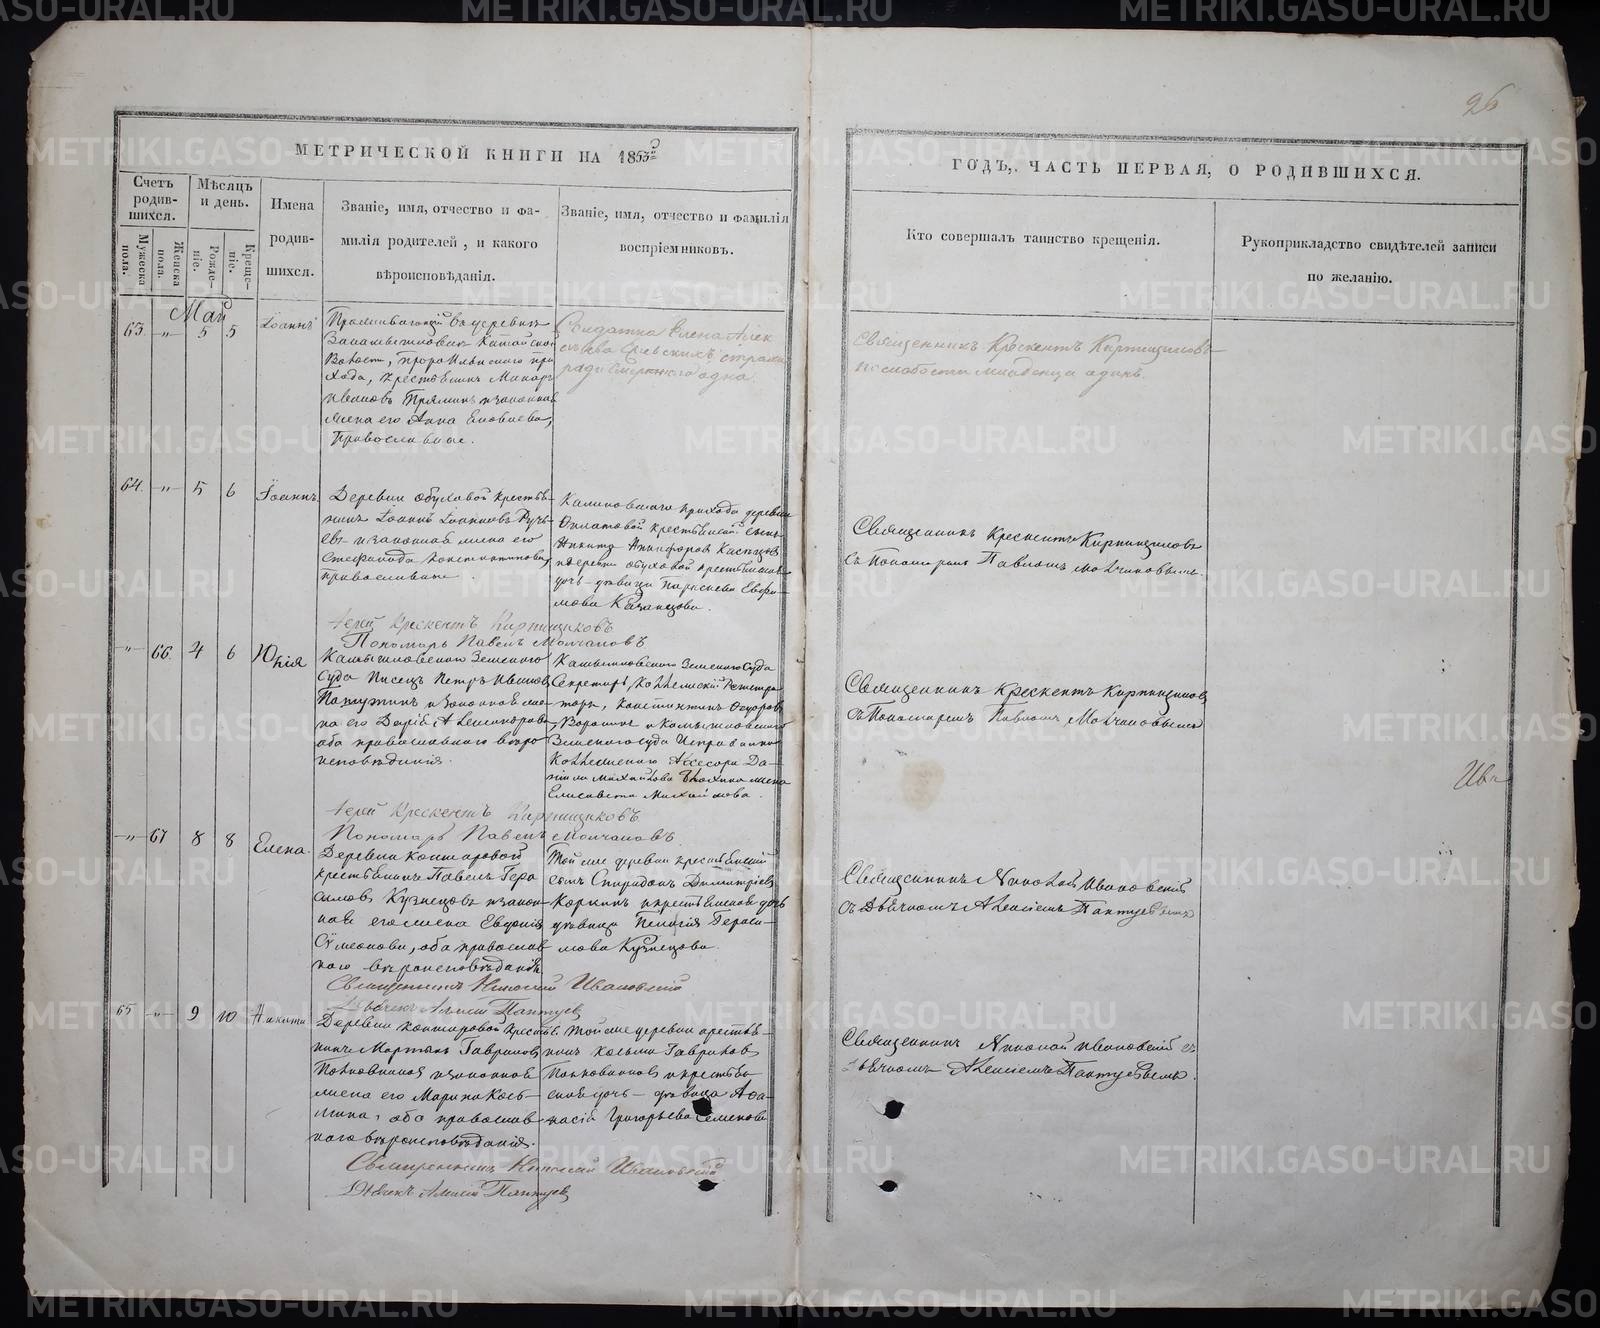 26
МЕТРИЧЕСКОЙ КНИГИ НА 1853й
ГОДЪ, ЧАСТЬ ПЕРВАЯ, О РОДИВШИХСЯ.
Счетъ родившихся.
Мужеска пола.
Женска пола.
Мѣсяцъ и день.
Рожденіе.
Крещеніе.
Имена
родив-
шихся.
Званіе, имя, отчество и фа-
милія родителей, и какого
вѣроисповѣданія.
Званіе, имя, отчество и фамилія
воспріемниковъ.
Кто совершалъ таинство крещенія.
Рукоприкладство свидѣтелей записи
по желанію.
Май
63 „ 5 5 Іоаннъ
Проживающій въ деревнѣ
Волости,
хода, крестьянинъ Макаръ
Ивановъ и законная
жена его Анна
Православные.
Солдатка Елена
одна.
Священникъ Крескентъ Кирпищиковъ
по слабости младенца одинъ.
64. „ 5 6 Іоаннъ
Деревни Обуховой крестья-
нинъ Іоаннъ Іоанновъ Ручь-
евъ и законная жена его
Стефанида Константинова,
православные.
Калиновскаго прихода деревни
крестьянскій сынъ
Никита Никифоровъ
и деревни Обуховой крестьянская
дочь девица Параскева Евфи-
мова Казанцова.
Священникъ Крескентъ Кирпищиковъ
съ Пономаремъ Павломъ Молчановымъ.
Іерей Крескентъ Кирпищиковъ
Пономарь Павелъ Молчановъ
„ 66. 4 6 Юлія
Камышловскаго Земскаго
Суда Писецъ Петръ Ивановъ
и законная же-
на его Дарія Александрова
оба православнаго вѣро
исповѣданія.
Камышловскаго Земскаго Суда
Секретарь, Коллежскій Регистра
торъ, Константинъ Ѳедоровъ
и Камышловскаго
Земскаго суда Исправника
Коллежскаго Асесора Да-
ніила Михайлова жена
Елисавета Михайлова.
Священникъ Крескентъ Кирпищиковъ
съ Пономаремъ Павломъ Молчановымъ
Іерей Крескентъ Кирпищиковъ
Пономарь Павелъ Молчановъ.
„ 67 8 8 Елена.
Деревни Кокшаровой
крестьянинъ Павелъ Гера
симовъ Кузнецовъ и закон-
ная его жена Евдокія
Симеонова, оба православ
наго вѣроисповѣданія.
Той же деревни крестьянскій
сынъ Спиридонъ Димитріевъ
и крестьянская дочь
девица Пелагія Гераси-
мова Кузнецова.
Священникъ Николай Ивановскій
съ Дьячкомъ Алексіемъ Пантуевымъ
Священникъ Николай Ивановскій
Дьячекъ Алексій Пантуевъ
65 „ 9 10 Никита
Деревни Кокшаровой крестья-
нинъ Мартынъ Гавриловъ
Половинкинъ и законная
жена его Марина Козь-
мина, оба православ-
наго вѣроисповѣданія.
Той же деревни крестья-
нинъ Козьма Гавриловъ
и крестьян
ская дочь девица Аѳа-
насія Григорьева Семенова
Священникъ Николай Ивановскій съ
Дьячкомъ Алексіемъ Пантуевымъ.
Священникъ Николай Ивановскій
Дьячекъ Алексій Пантуевъ
METRIKI.GASO-URAL.RU